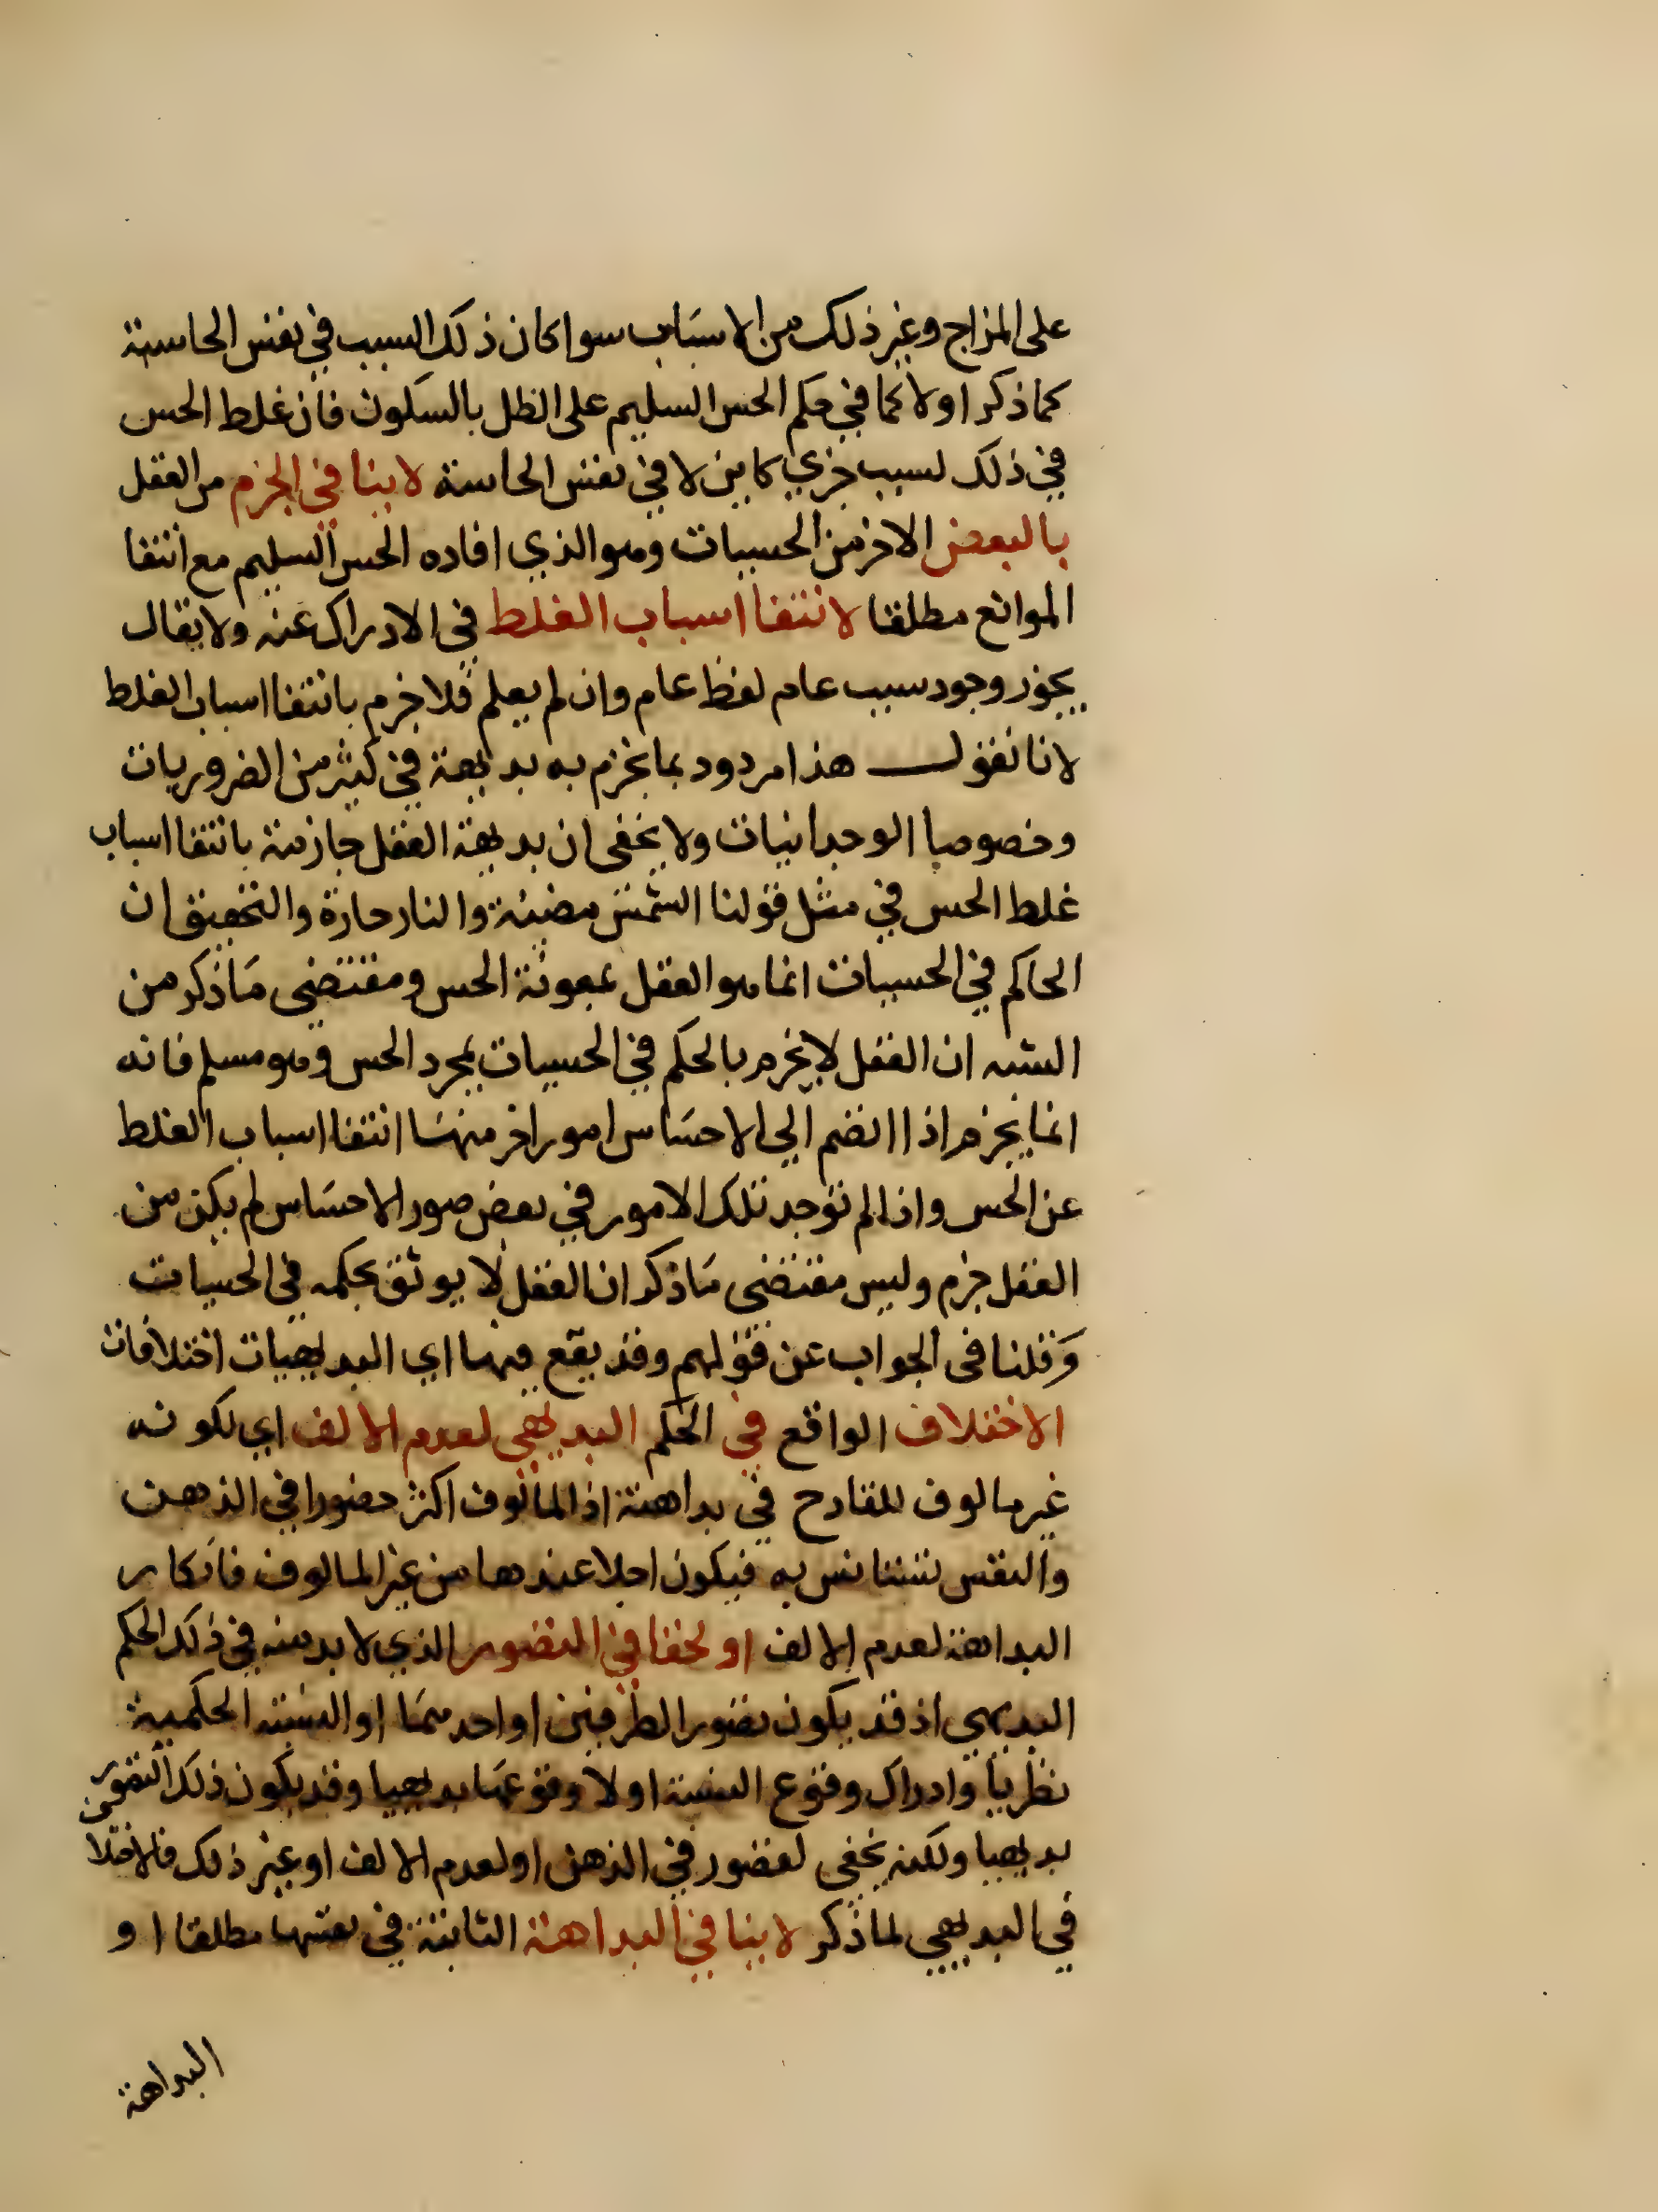 على المزاج وغير ذلك من الاسباب سوا كان ذلك السبب في نفس الحاسة
كما ذكر او لا كما في حكم الحس السليم على الظل بالسكون فان غلط الحس
في ذلك لسبب جزي كاين لا في نفس الحاسة لا ينافي الجزم من العقل
بالبعض الاخر من الحسيات وهو الذي افاده الحس السليم مع انتفا
الموانع مطلقا لانتفا اسباب الغلط في الادراك عنه ولا يقال
يجوز وجود سبب عام لغلط عام وان لم يعلم فلا جزم بانتفا اسباب الغلط
لانا نقول هذا مردود بما نجزم به بديهة في كثير من الضروريات
وخصوصا الوجدانيات ولا يخفى ان بديهة العقل جازمة بانتفا اسباب
غلط الحس في مثل قولنا الشمس مضيئة والنار حارة والتحقيق ان
الحاكم في الحسيات انما هو العقل بمعونة الحس ومقتضى ما ذكر من
الشبه ان العقل لا يجزم بالحكم في الحسيات بمجرد الحس وهو مسلم فانه
انما يجزم اذا انضم الي الاحساس امور اخر منها انتفا اسباب الغلط
عن الحس واذا لم توجد تلك الامور في بعض صور الاحساس لم يكن من
العقل جزم وليس مقتضى ما ذكر ان العقل لا يوثق بحكمه في الحسيات
وقلنا في الجواب عن قولهم وقد يقع فيها اي البديهيات اختلافات
الاختلاف الواقع في الحكم البديهي لعدم الالف اي لكونه
غير مالوف للقادح في بداهته اذ المالوف اكثر حضورا في الذهن
والنفس تستانس به فيكون اجلا عندها من غير المالوف فانكار
البداهة لعدم الالف او لخفا في التصور الذي لا بد منه في ذلك الحكم
البديهي اذ قد يكون تصور الطرفين او احدهما او النسبة الحكمية
نظريا وادراك وقوع النسبة او لا وقوعها بديهيا وقد يكون ذلك التصور
بديهيا ولكنه يخفى لقصور في الذهن او لعدم الالف او غير ذلك فالاختلاف
في البديهي لما ذكر لا ينافي البداهة الثابتة في نفسها مطلقا او
البداهة